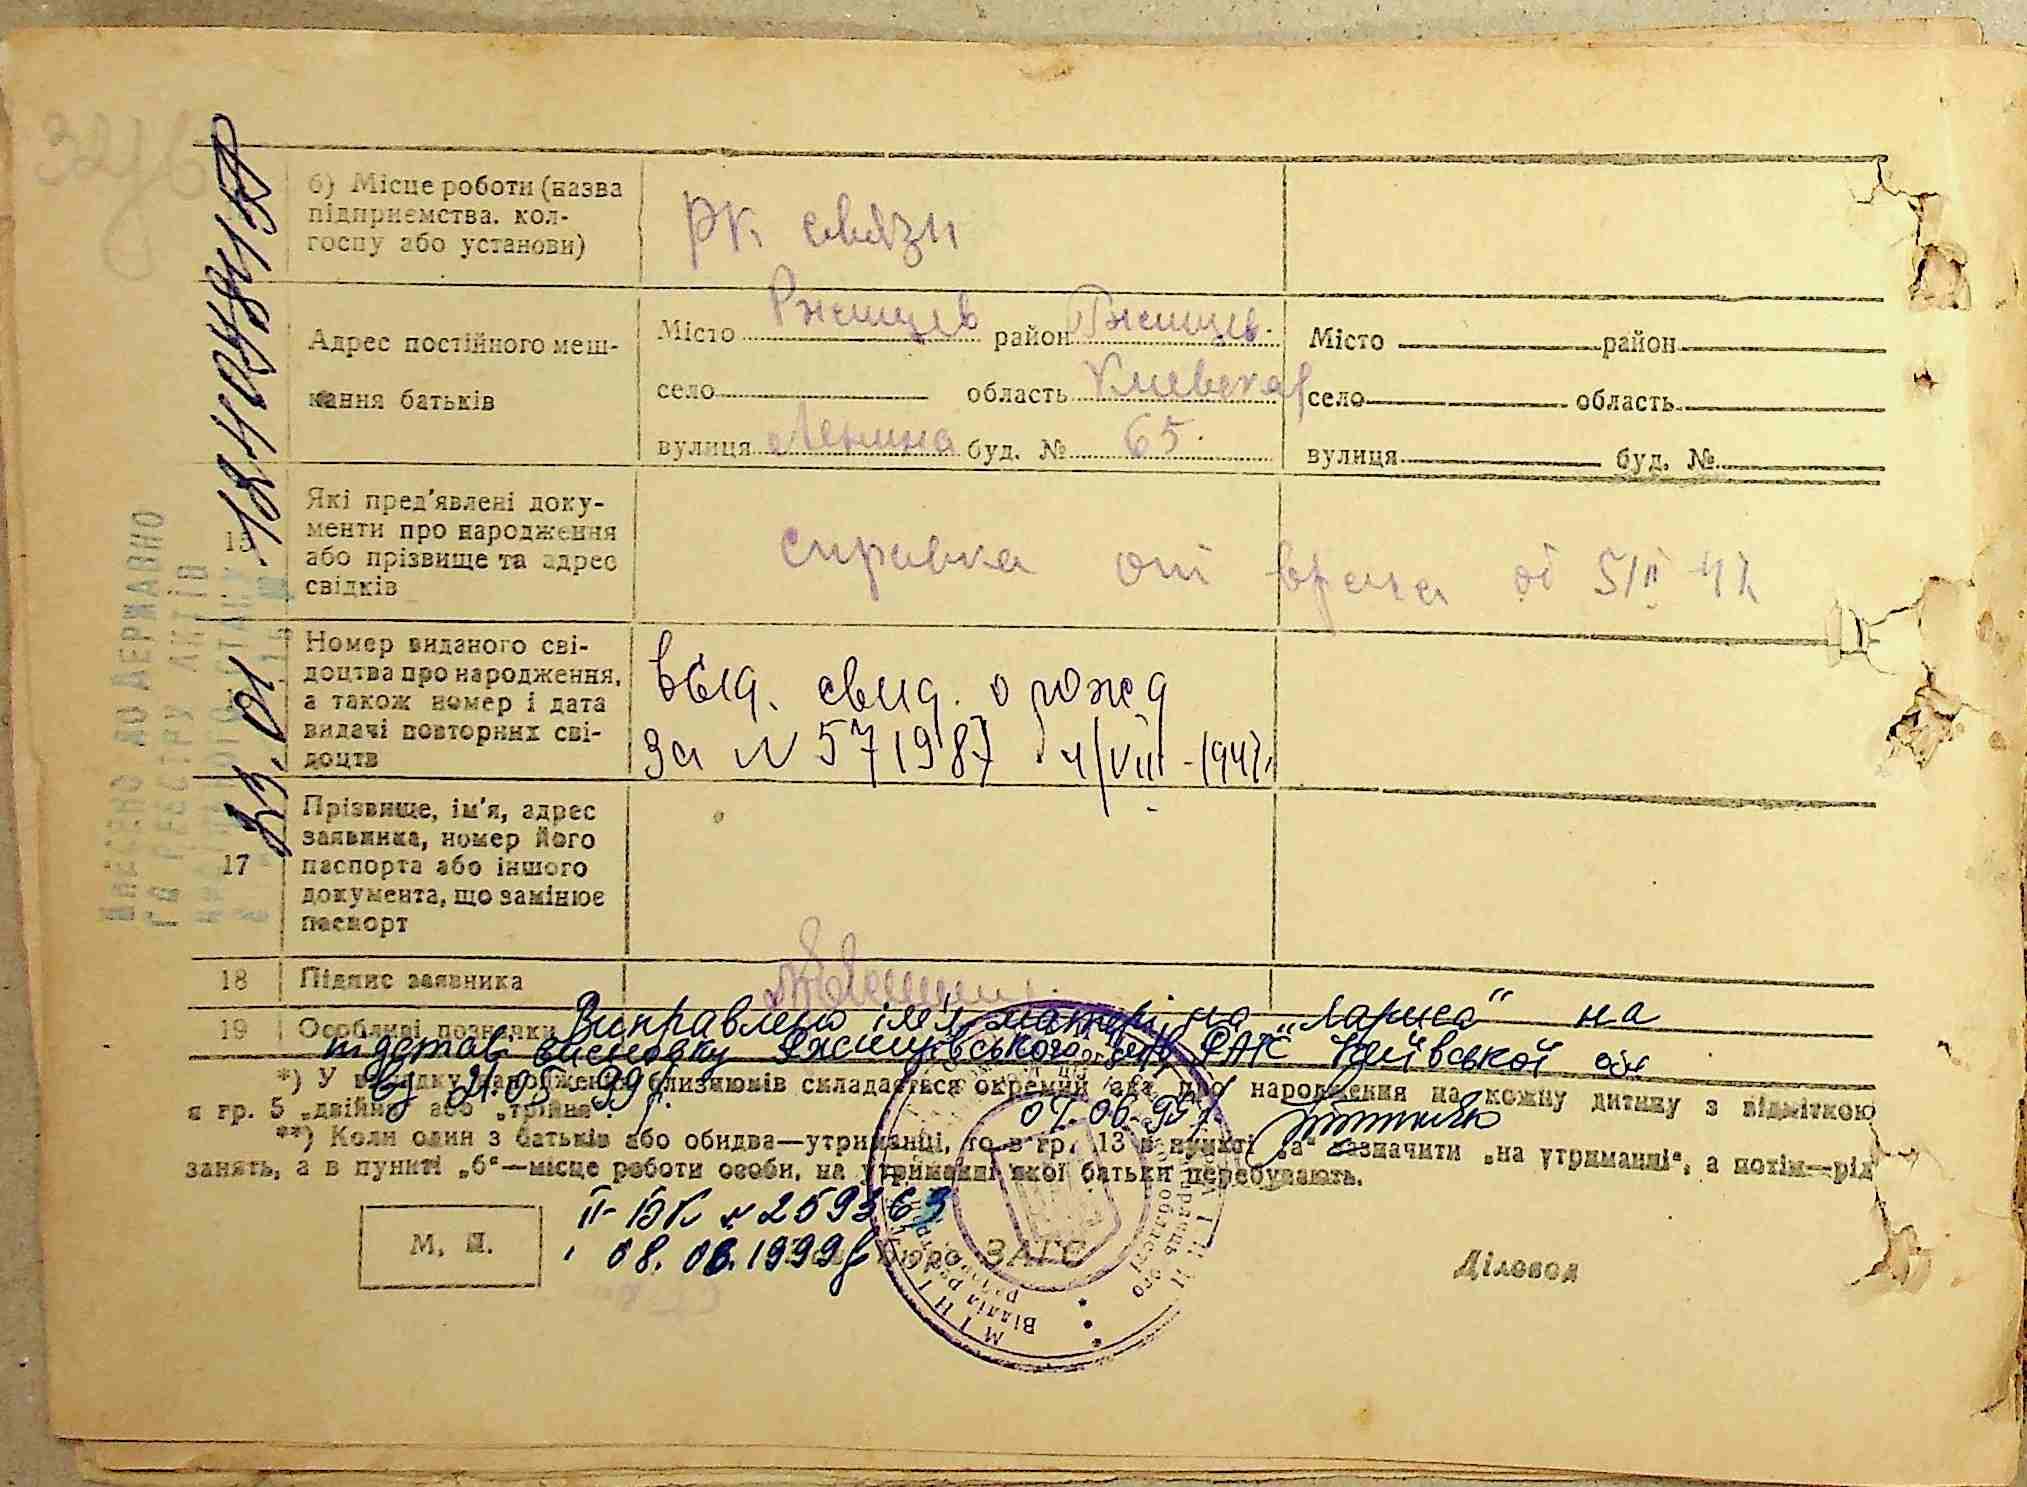 б) Місце роботи (назва
підприємства. кол-
госпу або установи)
РК связи
Адрес постійного меш-
кання батьків
Місто Ржищев район Ржищев.
село область Киевская
вулиця Ленина буд. № 65.
Місто район
село область
вулиця буд. №
15
Які пред'явлені доку-
менти про народження
або прізвище та адрес
свідків
справка от врача
Номер виданого сві-
доцтва про народження,
а також номер і дата
видачі повторних сві-
доцтв
выд. свид. о рожд
за N 571987
17
Прізвище, ім'я, адрес
заявника, номер його
паспорта або іншого
документа, що замінює
паспорт
18 Підпис заявника
19 Особливі позначки Виправлено ім'я матері на „Лариса" на
підставі висновку Ржищівського ЗАГС Київської обл
від 21.05.99
07.06.99
*) У випадку народження близнюків складається окремий акт про народження на кожну дитину з відміткою
в гр. 5 „двійня" або „трійня".
**) Коли один з батьків або обидва—утриманці, то в гр. 13 в пункті „а" зазначити „на утриманні", а потім—рід
занять, а в пункті „б"—місце роботи особи, на утриманні якої батьки перебувають.
II-БК № 259363
08.06.1999
М. П.
бюро ЗАГС
Діловод
ВНЕСЕНО ДО ДЕРЖАВНО
ГО РЕЄСТРУ АКТІВ